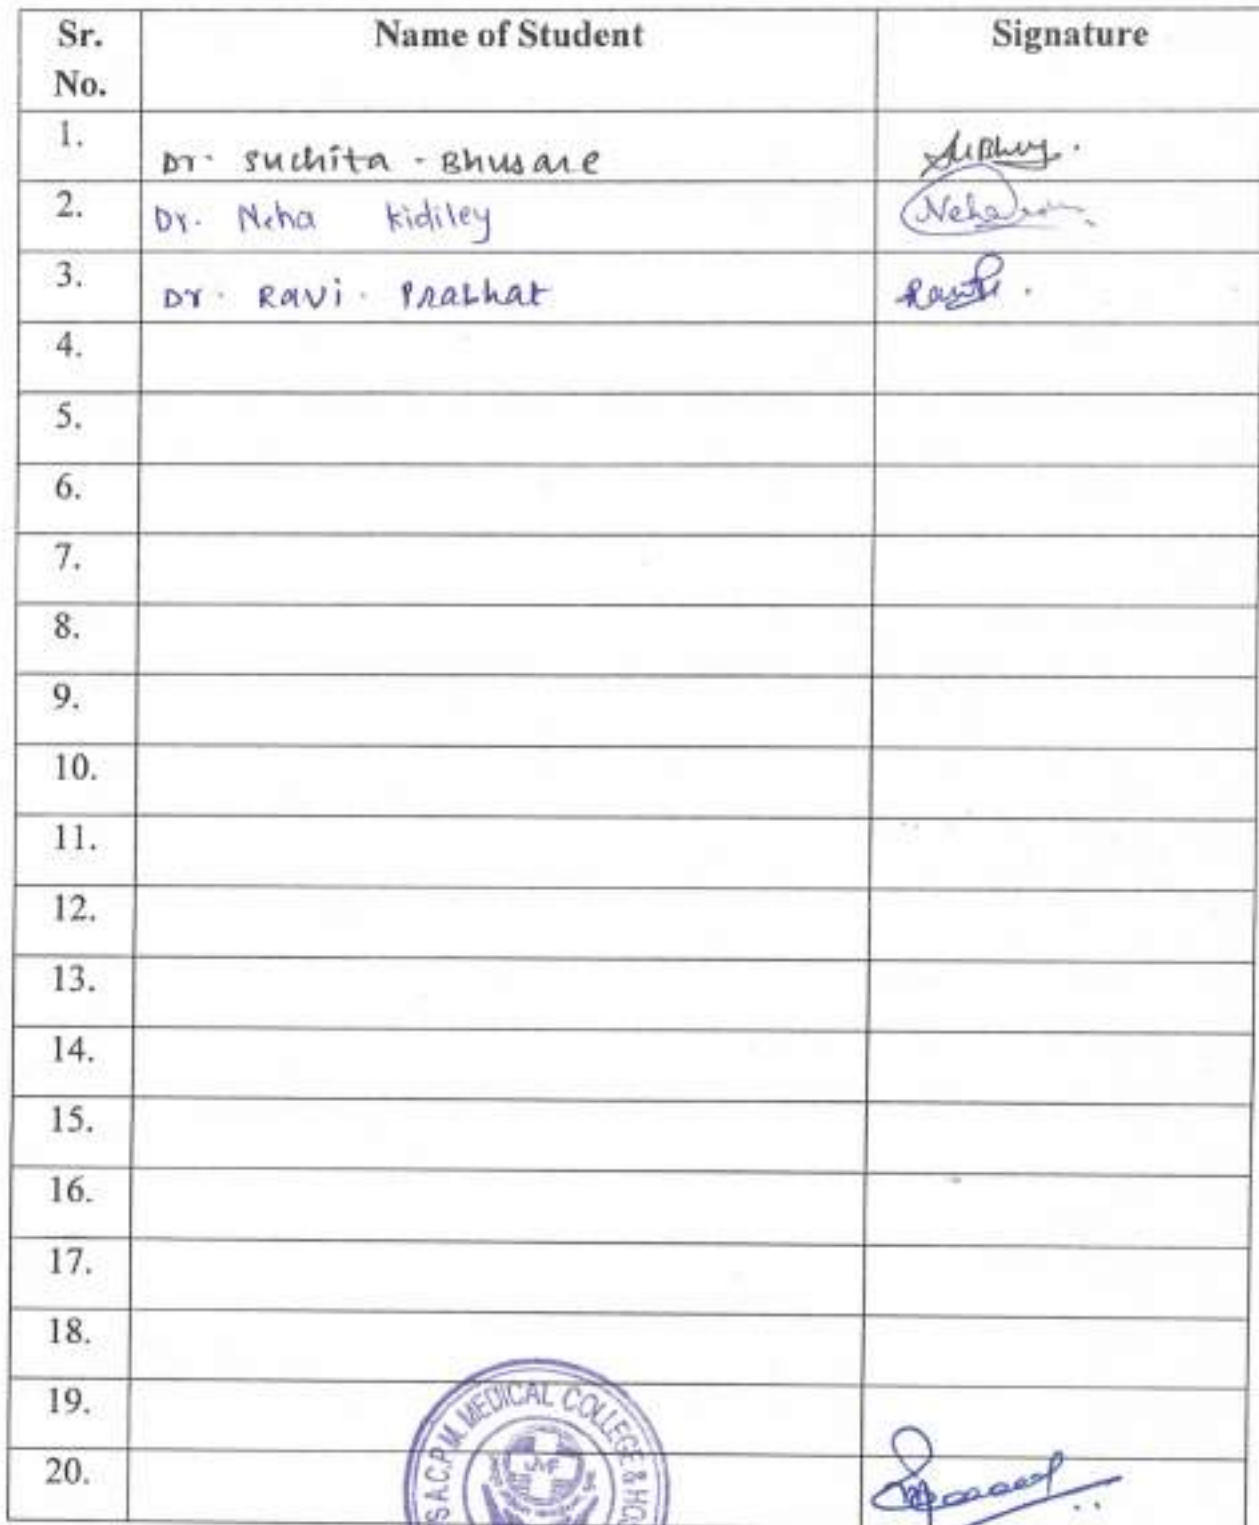 Sr. No. Name of Student Signature
1. Dr. Suchita - Bhusare
2. Dr. Neha Kidiley Neha
3. Dr. Ravi. Prabhat
4.
5.
6.
7.
8.
9.
10.
11.
12.
13.
14.
15.
16.
17.
18.
19.
20.
A.C.P.M. MEDICAL COLLEGE &
JMF